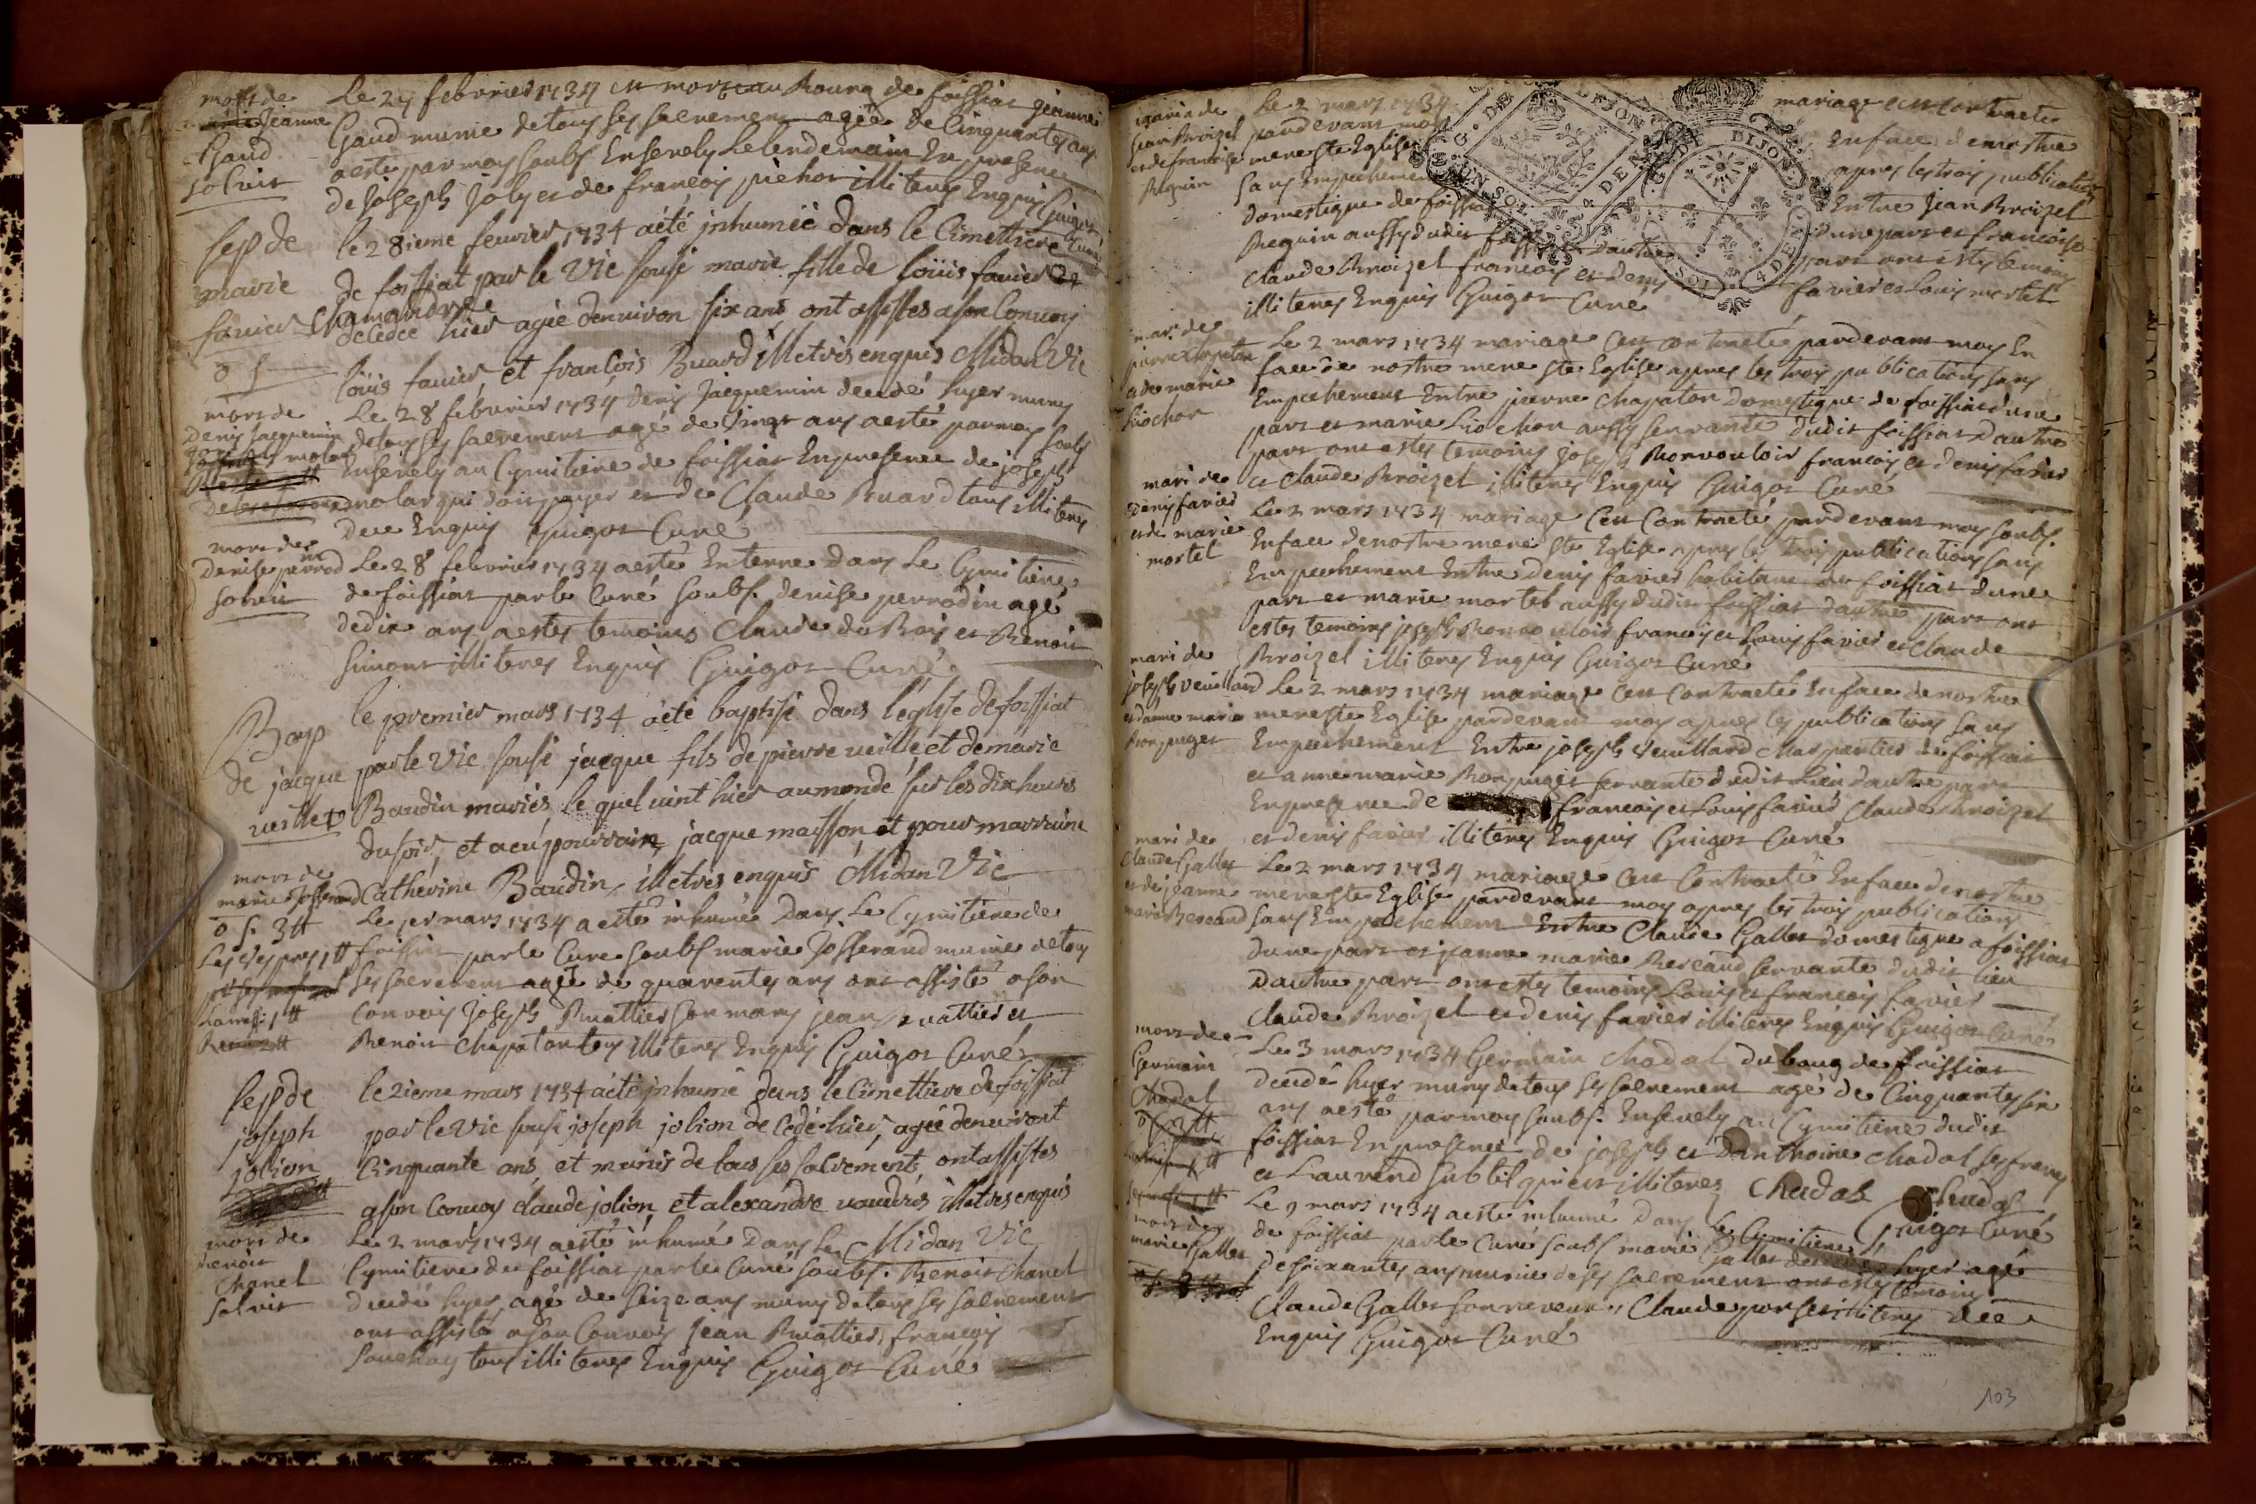 mort de
Jeanne
Gaud
solvit
Le 27 febvrier 1734 est morte au Bourg de foissiat Jeanne
Gaud munie de tous ses sacrement agée de Cinquantes ans
aesté par moy soubs. Ensevely Le lendemain En presence
de Joseph Joly et de françois pichot illiteres Enquis Guigot
Curé
sep de
marie
favier
le 28ieme fevrier 1734 a été inhumée dans le Cimettiere
de foissiat par le Vic sousé marie fille de loüis favier et
decedee hier agée denviron six ans ont assistes a son Convoy
loüis favier et françois Buard illetrés enquis Midan Vic
mort de
Denis Jacquemin
Le 28 febvrier 1734 Denis Jacquemin decedé hyer muny
de tous ses sacrement agé de Vingt ans aesté par moy soubs
Ensevely au Cymitiere de foissiat En presence de joseph
molar qui doit payer et de Claude Buard tous illiteres
Enquis Guigot Curé
mort de
Denise perrod
solvit
Le 28 febvrier 1734 aesté Enterré Dans Le Cymitiere
de foissiat par le Curé soubs. denise perrodin agé
de dix ans aestes temoins Claude du Bois et Benoit
simont illiteres Enquis Guigot Curé
Bap
de jacque
veille
le premier mars 1734 a été baptisé dans l'église de foissiat
par le Vic sousé jacque fils de pierre veille et de marie
Baudin mariés, le quel vint hier au monde sur les dix heures
du soir, et a eu pour parrain jacque masson, et pour marraine
Catherine Baudin illetrés enquis Midan Vic
mort de
marie Josserand
Le 1er mars 1734 aesté inhumé Dans Le Cymitiere de
foissiat par le Curé soubs marie Josserand munie de tous
ses sacrement agé de quarentes ans ont assisté a son
Convois Joseph Buattier son mary jean Buattier et
Benoit Chapaton tous illiteres Enquis Guigot Curé
sep de
joseph
jolion
le 2ieme mars 1734 a été inhumé dans le Cimettiere de foissiat
par le Vic sousé joseph jolion decedé hier, agée denviront
Cinquante ans, et munis de tous ses sacrements, ont assistes
a son Convoy claude jolion, et alexandre vaudrés illetrés enquis
Midan Vic
mort de
Benoit
Chanel
solvit
Le 2 mars 1734 aesté inhumé Dans Le
Cymitiere de foissiat par le Curé soubs. Benoit Chanel
decedé hyer agé de seize ans muny de tous ses sacrement
ont assisté a son Convois Jean Buattier, françois
souchay tous illiteres Enquis Guigot Curé
maria de
Jean Broizel
et de françoise
Reguin
Le 2 mars 1734 mariage cest contracté
pardevant moy En face de nostre
mere ste Eglise apres les trois publications
sans Empechement Entre Jean Broizel
domestique de foissiat d'une part et françoise
Reguin aussy dudit foissiat d'autre part ont estes temoins
Claude Broizel françois et denis favier et Louis mortel
illiteres Enquis Guigot Curé
G. DE DIJON
UN SOL. 4 DEN
DIJON
SOL 4 DEN
mari de
pierre Chapaton
et de marie
Liochon
Le 2 mars 1734 mariage cest contracté pardevant moy En
face de nostre mere ste Eglise apres les trois publications sans
Empechement Entre pierre Chapaton Domestique de foissiat d'une
part et marie Liochon aussy servante dudit foissiat d'autre
part ont estes temoins Joseph Monvouloir françois et denis favier
et Claude Broizel illiteres Enquis Guigot Curé
mari de
Denis favier
et de marie
mortel
Le 2 mars 1734 mariage cest Contracté pardevant moy soubs.
En face de nostre mere ste Eglise apres les trois publications sans
Empechement Entre denis favier habitant de foissiat d'une
part et marie mortel aussy dudit foissiat d'autre part ont
estes temoins joseph Monvouloir françois et Louis favier et Claude
Broizel illiteres Enquis Guigot Curé
mari de
joseph Veuillard
et d'anne marie
Monpuget
Le 2 mars 1734 mariage cest Contracté En face de nostre
mere ste Eglise pardevant moy apres les publications sans
Empechement Entre joseph Veuillard Charpantier de foissiat
et anne marie Monpuget servante dudit Lieu d'autre part
En presence de françois et Louis favier Claude Broizel
et denis favier illiteres Enquis Guigot Curé
mari de
Claude Gallet
et de jeanne
marie Bereaud
Le 2 mars 1734 mariage cest Contracté En face de nostre
mere ste Eglise pardevant moy apres les trois publications
sans Empechement Entre Claude Gallet domestique a foissiat
d'une part et jeanne marie Bereaud servante dudit lieu
D'autre part ont estes temoins Louis et françois favier
Claude Broizel et denis favier illiteres Enquis Guigot Curé
mort de
Germain
Chadal
Le 3 mars 1734 Germain Chadal du boug de foissiat
decedé hyer muny de tous ses sacrement agé de Cinquantes six
ans aesté par moy soubs. Ensevely au Cymitiere dudit
foissiat En presence de joseph et D'anthoine Chadal ses freres
et Laurend subtil qui est illiteres Chadal Chadal
Guigot Curé
mort de
marie Gallet
Le 9 mars 1734 aesté inhumé Dans Le Cymitiere
de foissiat par le Curé soubs marie Gallet decedé hyer agé
de soixantes ans munie de ses sacrement ont estes temoins
Claude Gallet son neveux, Claude illiteres
Enquis Guigot Curé
103